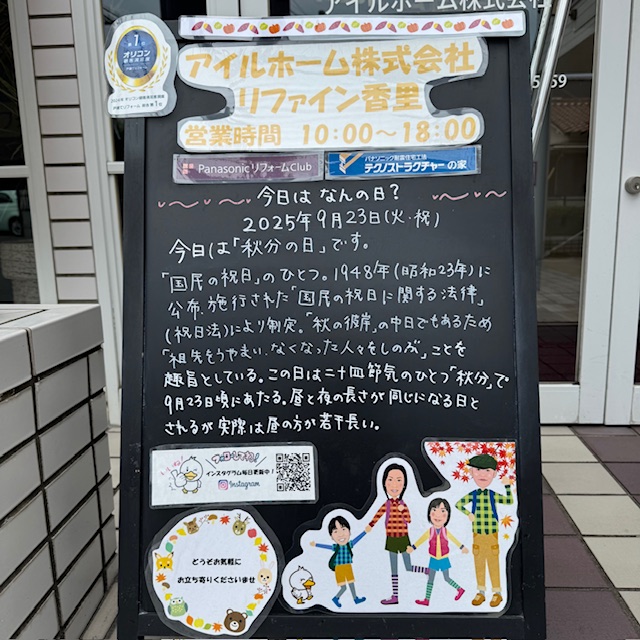 アイルホーム株式会社
1
オリコン
アイルホーム株式会社
リファイン香里
営業時間 10:00〜18:00
Panasonic リフォームClub
パナソニック耐震住宅工法
テクノストラクチャーの家
今日は なんの日?
2025年9月23日(火・祝)
今日は「秋分の日」です。
「国民の祝日」のひとつ。1948年(昭和23年)に
公布、施行された「国民の祝日に関する法律」
(祝日法)により制定。「秋の彼岸」の中日でもあるため
「祖先をうやまい、なくなった人々をしのぶ」ことを
趣旨としている。この日は二十四節気のひとつ「秋分」で
9月23日頃にあたる。昼と夜の長さが同じになる日と
されるが実際は昼の方が若干長い。
フォローしてネ!
インスタグラム毎日更新中!
Instagram
どうぞお気軽に
お立ち寄りくださいませ